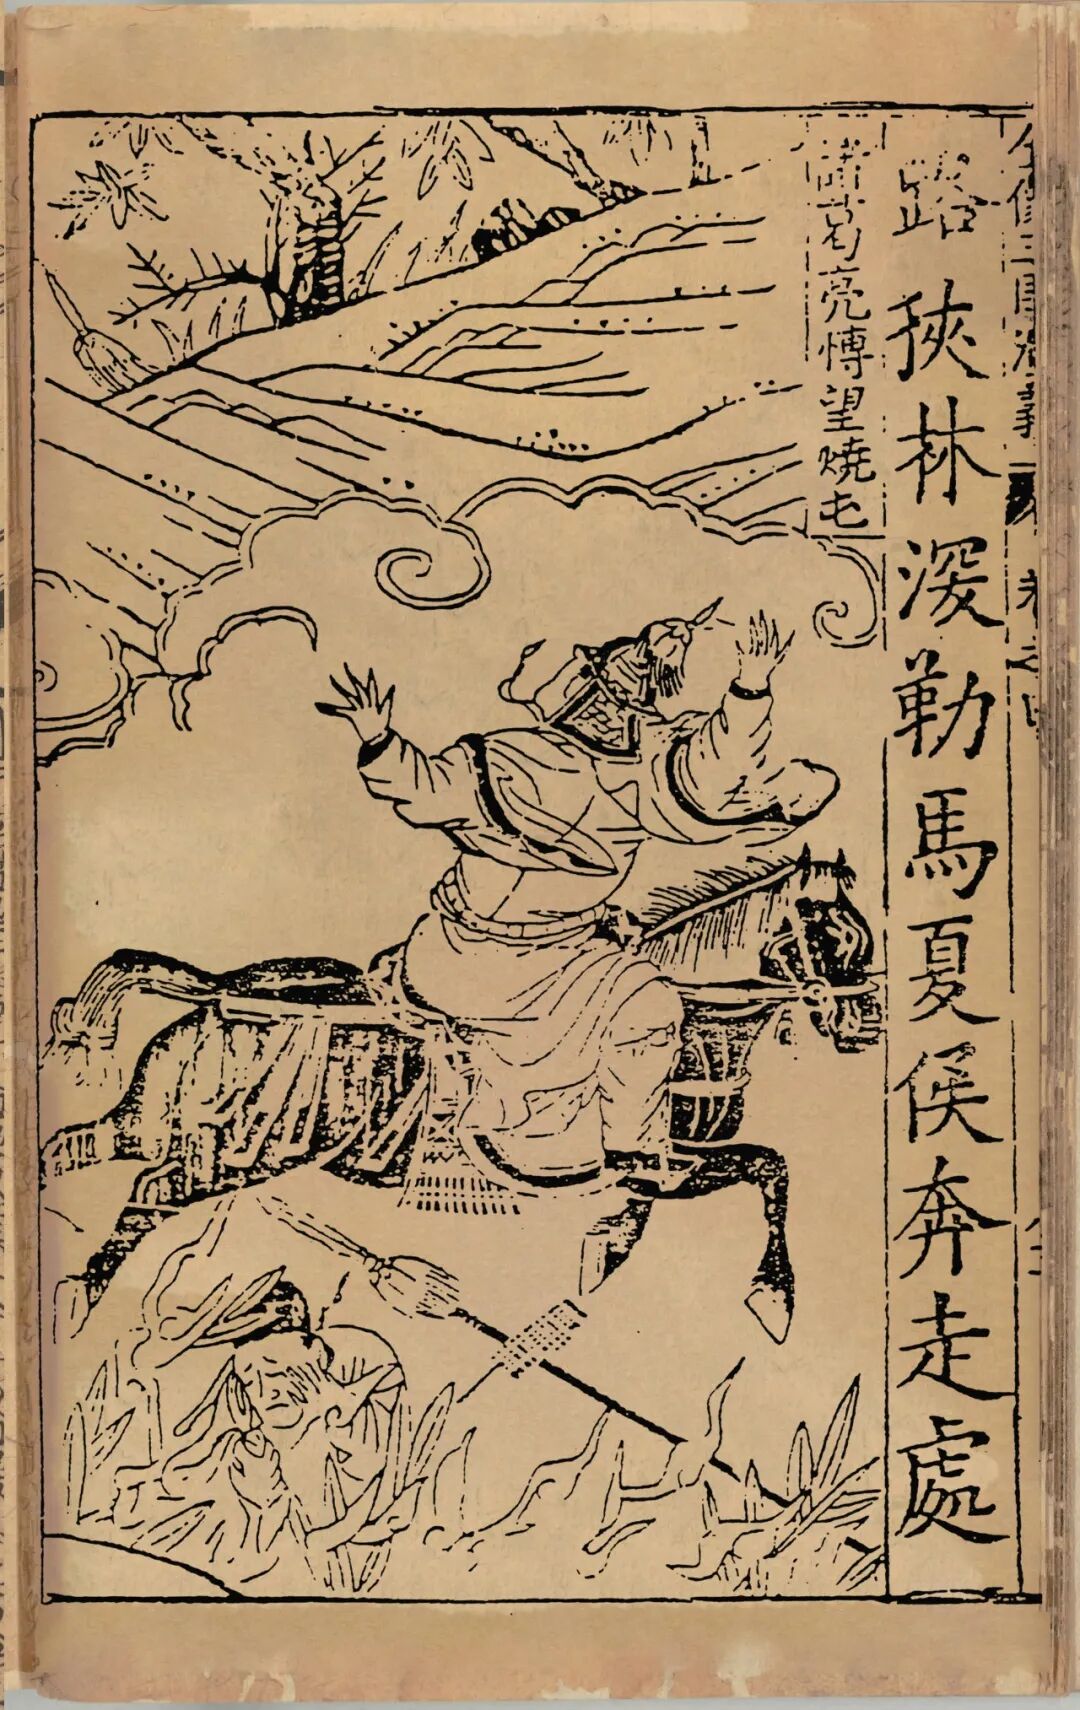 全像三國演義 卷之四
路狹林深勒馬夏侯奔走處
諸葛亮愽望燒屯